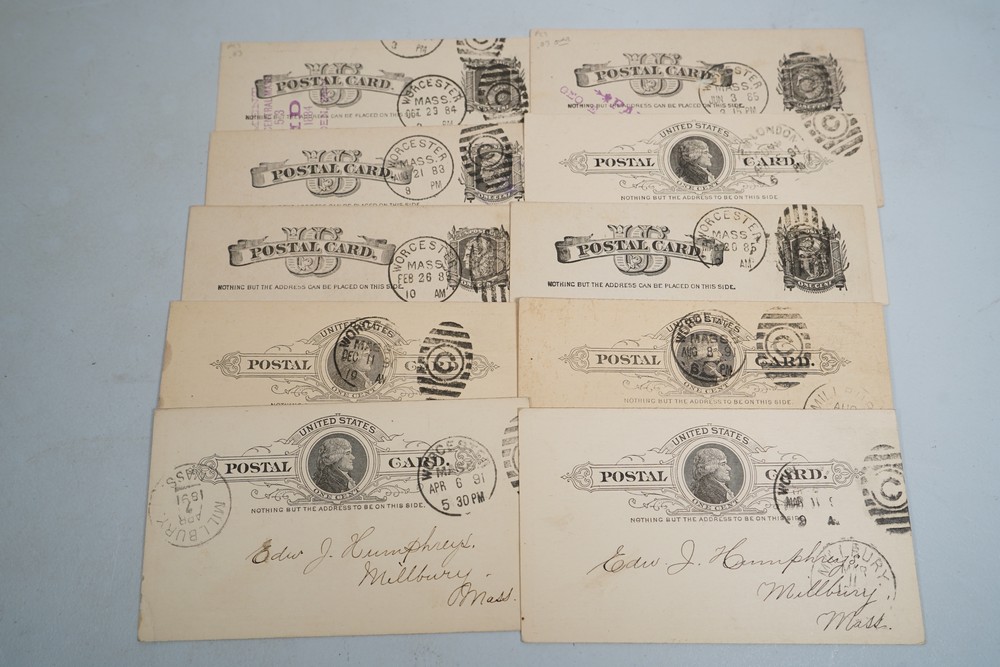 POSTAL CARD.
NOTHING BUT THE ADDRESS CAN BE PLACED ON THIS SIDE.
WORCESTER
MASS.
OCT 23 84
1884
POSTAL CARD.
ADDRESS CAN BE PLACED ON THIS SIDE
WORCESTER
MASS.
JUN 3 85
9 15 PM
POSTAL CARD.
WORCESTER
MASS.
21 83
8 PM
ONE CENT
UNITED STATES
POSTAL CARD.
ONE CENT
NOTHING BUT THE ADDRESS TO BE ON THIS SIDE.
LONDON
POSTAL CARD.
NOTHING BUT THE ADDRESS CAN BE PLACED ON THIS SIDE.
WORCESTER
MASS.
FEB 26
10 AM
POSTAL CARD.
NOTHING BUT THE ADDRESS CAN BE PLACED ON THIS SIDE.
WORCESTER
MASS.
26 85
AM
ONE CENT
UNITED STATES
POSTAL CARD.
ONE CENT
NOTHING BUT THE ADDRESS TO BE ON THIS SIDE.
DEC 11
UNITED STATES
POSTAL CARD.
ONE CENT
NOTHING BUT THE ADDRESS TO BE ON THIS SIDE.
MASS.
AUG 8
PM
UNITED STATES
POSTAL CARD.
ONE CENT
NOTHING BUT THE ADDRESS TO BE ON THIS SIDE.
WORCESTER
MASS.
APR 6 91
5 30 PM
MILLBURY
MASS.
APR
1891
Edw J. Humphreys,
Millbury.
Mass.
UNITED STATES
POSTAL CARD.
ONE CENT
NOTHING BUT THE ADDRESS TO BE ON THIS SIDE.
MAR 11
9 A
MILLBURY
Edw. J. Humphreys,
Millbury.
Mass.